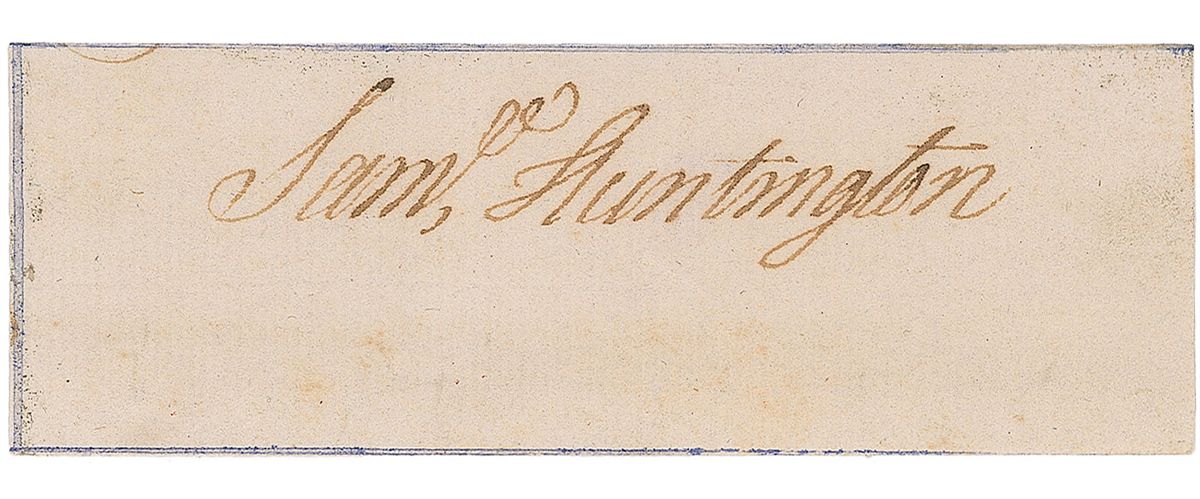 Sam^l, Huntington